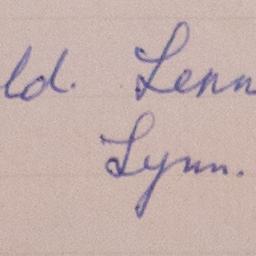 ld. Lenn
Lynn.